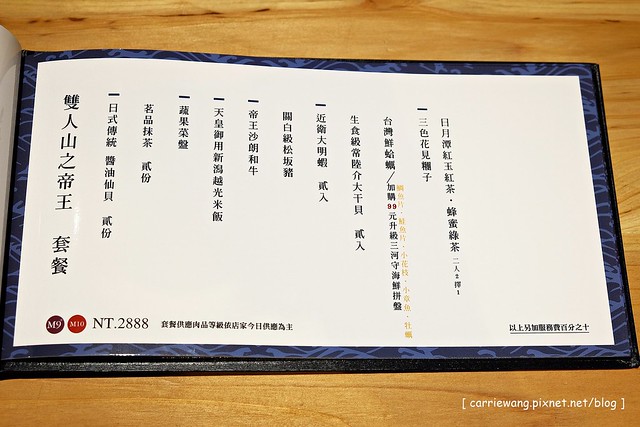 雙人山之帝王 套餐
日式傳統 醬油仙貝 貳份
茗品抹茶 貳份
蔬果菜盤
天皇御用新潟越光米飯
帝王沙朗和牛
關白級松坂豬
近衛大明蝦 貳入
生食級常陸介大干貝 貳入
台灣鮮蛤蠣／加購99元升級三河守海鮮拼盤
鯛魚片．鮭魚片．小花枝．小章魚．牡蠣
三色花見糰子
日月潭紅玉紅茶．蜂蜜綠茶 二人2擇1
M9 M10 NT.2888 套餐供應肉品等級依店家今日供應為主
以上另加服務費百分之十
[ carriewang.pixnet.net/blog ]